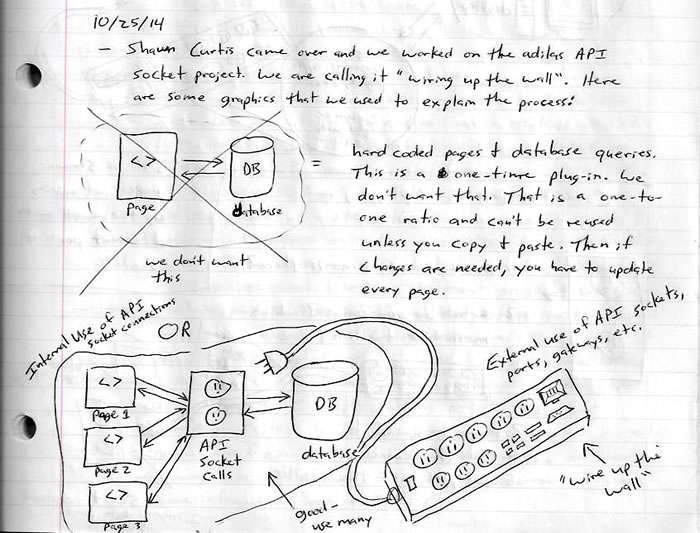 10/25/14
- Shawn Curtis came over and we worked on the adilas API
socket project. We are calling it "wiring up the wall". Here
are some graphics that we used to explain the process:
<>
DB
page
database
we don't want
this
=
hard coded pages & database queries.
This is a one-time plug-in. We
don't want that. That is a one-to-
one ratio and can't be reused
unless you copy & paste. Then if
changes are needed, you have to update
every page.
OR
Internal Use of API
socket connections
<>
page 1
<>
page 2
<>
page 3
API
Socket
Calls
DB
database
good-
use many
External use of API sockets,
ports, gateways, etc.
"wire up the
wall"